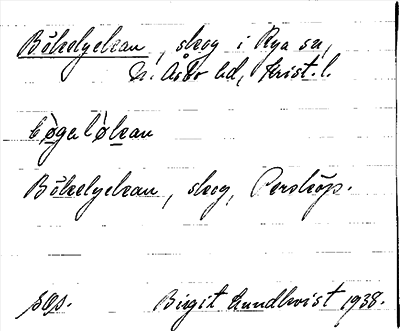 Bökelyckan, skog i Rya sn,
N. Åsbo hd, Krist. l.
bögelökan
Bökelyckan, skog, Perstorp.
sep. Birgit Lundkvist 1938.